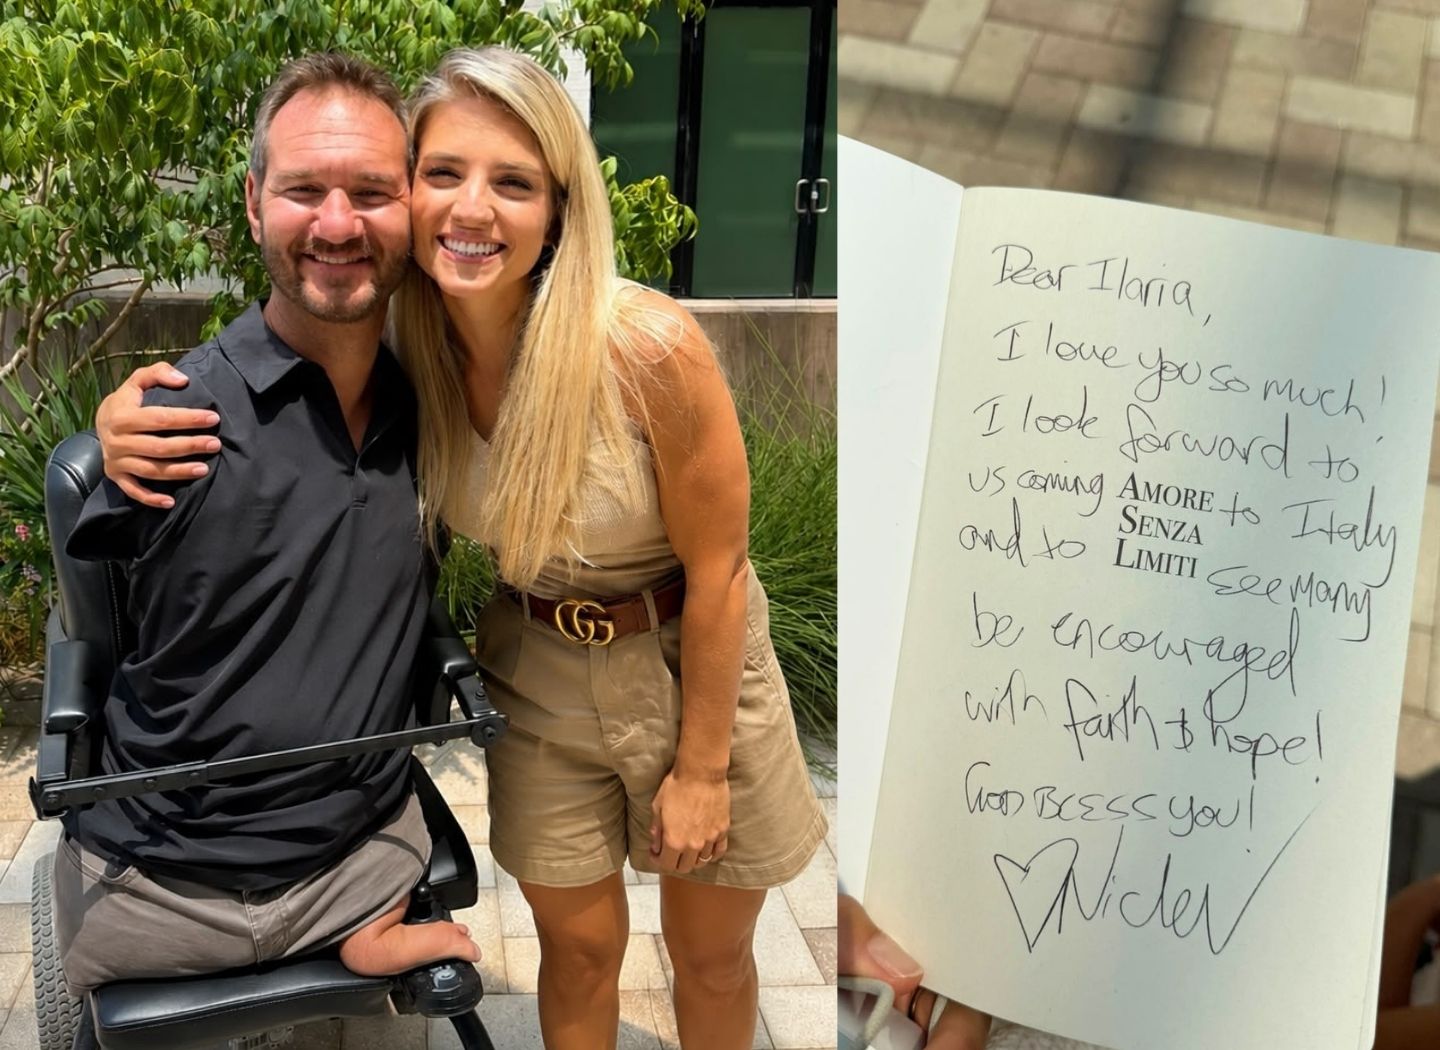 Dear Ilaria,
I love you so much!
I look forward to
us coming to Italy
AMORE
SENZA
LIMITI
and to see many
be encouraged
with faith & hope!
GOD BLESS YOU!
Nick V
GG